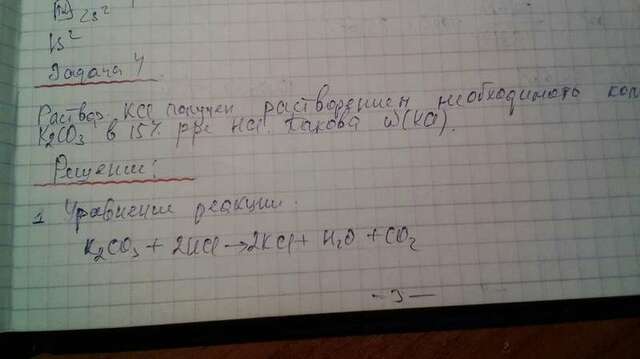 1s²
Задача 4
Раствор KCl получен растворением необходимого кол
K₂CO₃ в 15% р-ре HCl. Какова ω(KCl).
Решение:
1 Уравнение реакции:
K₂CO₃ + 2HCl → 2KCl + H₂O + CO₂
- 3 -